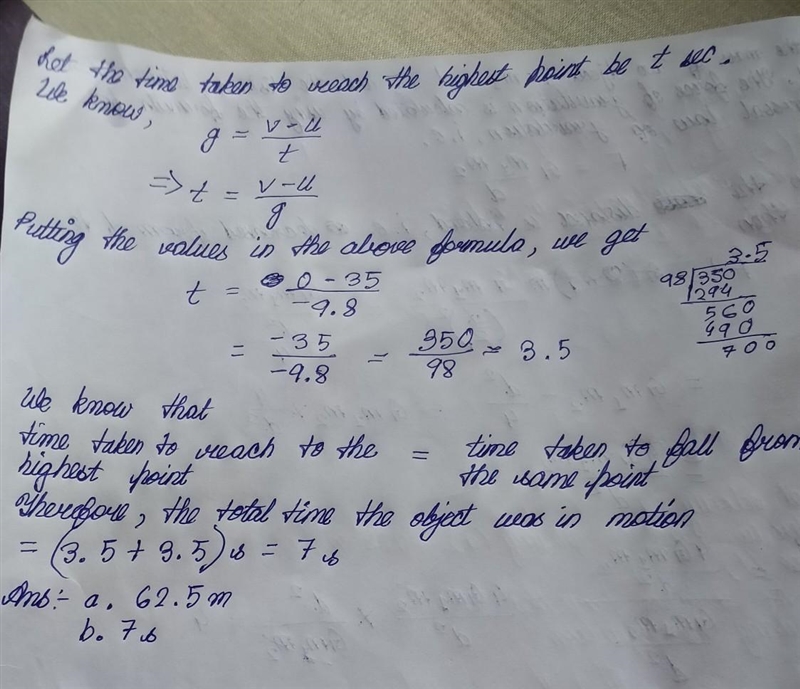 Let the time taken to reach the highest point be t sec.
We know,
g = v-u/t
=> t = v-u/g
Putting the values in the above formula, we get
t = 0-35/-9.8
= -35/-9.8 = 350/98 = 3.5
3.5
98 350
294
560
490
700
We know that
time taken to reach to the highest point = time taken to fall from the same point
Therefore, the total time the object was in motion
= (3.5+3.5)s = 7s
Ans:- a. 62.5m
b. 7s